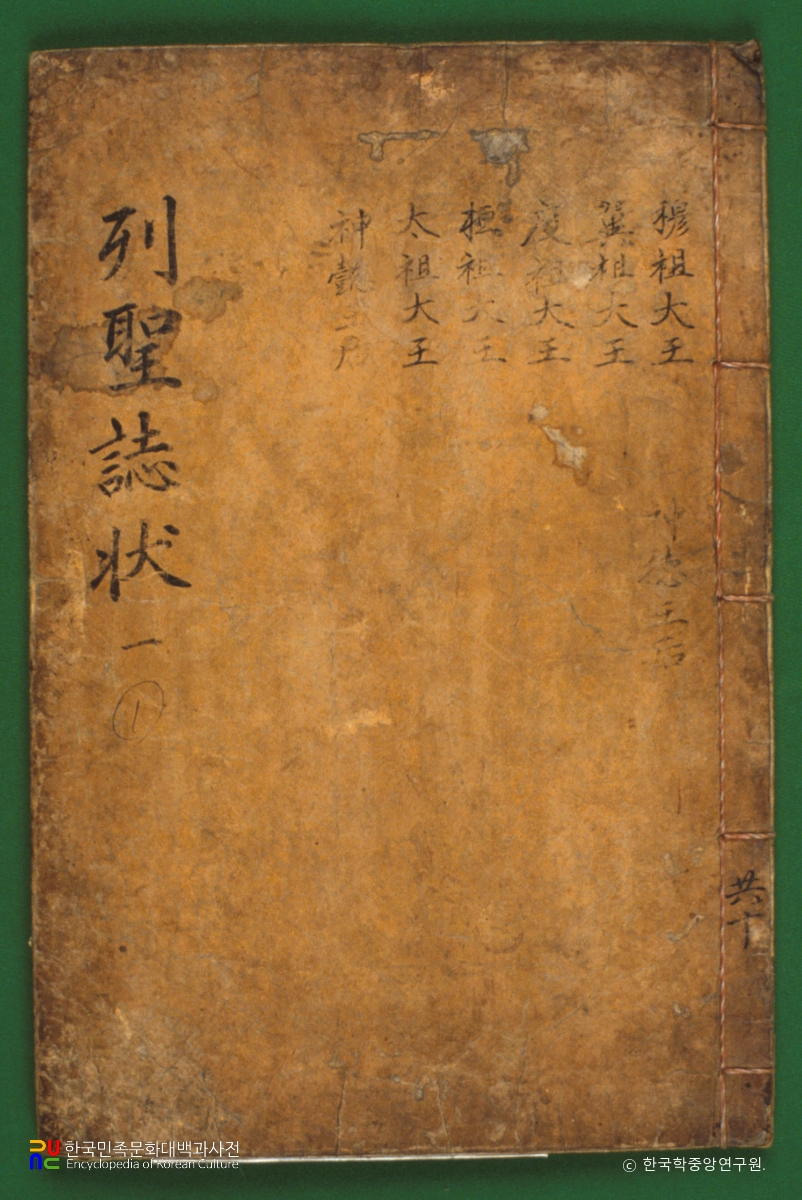 穆祖大王
翼祖大王
度祖大王
桓祖大王
太祖大王
神懿王后
神德王后
列聖誌状 一
1
共十
한국민족문화대백과사전
Encyclopedia of Korean Culture
ⓒ 한국학중앙연구원.